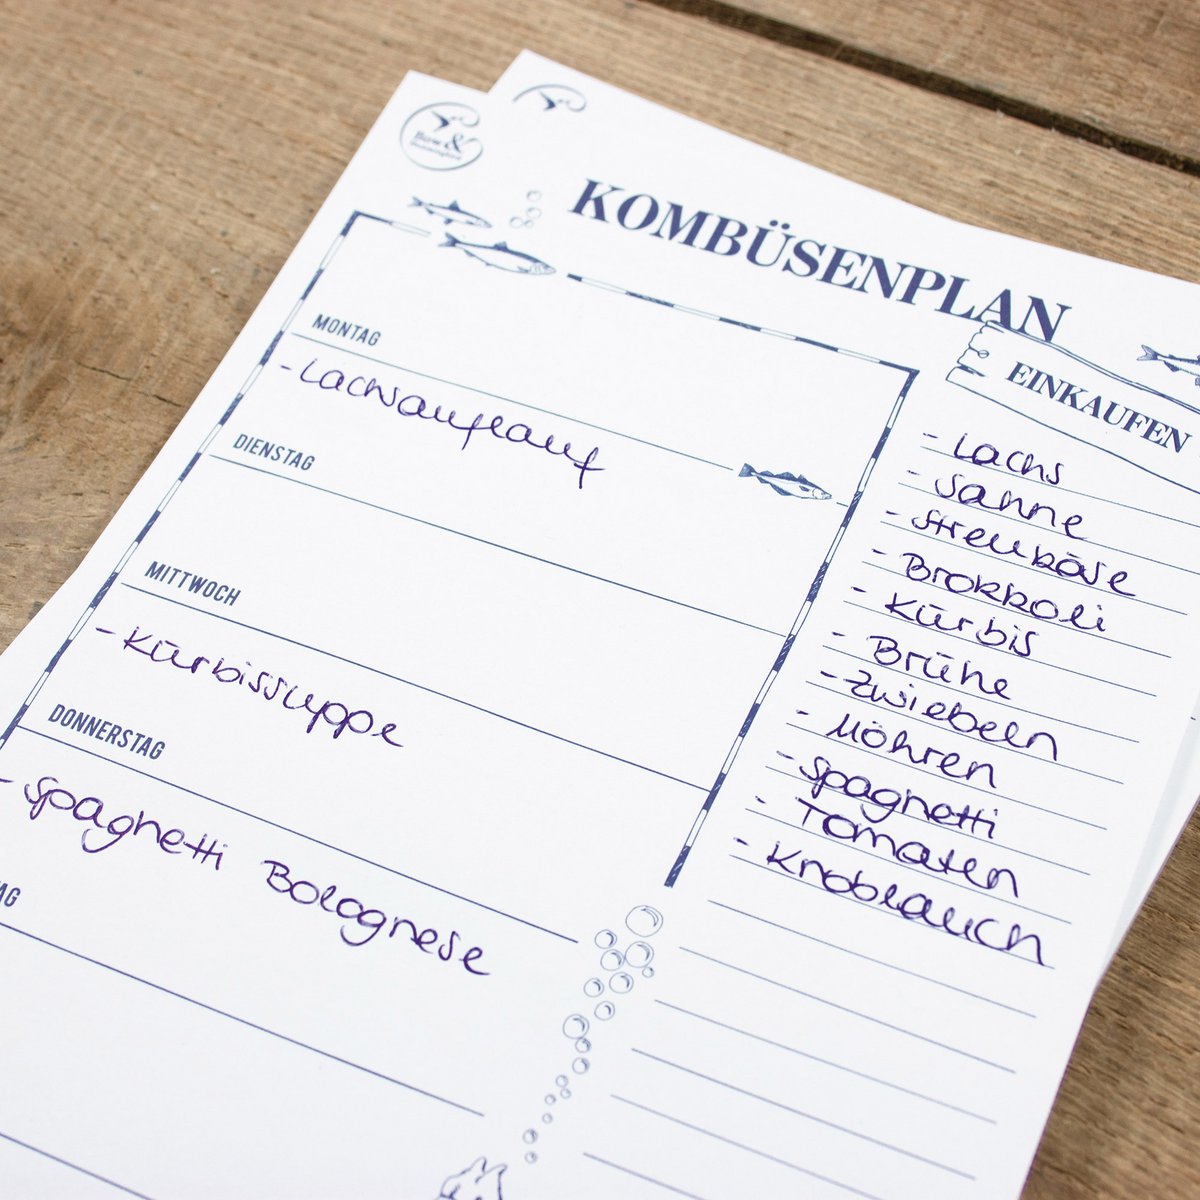 KOMBÜSENPLAN
MONTAG
- Lachsauflauf
DIENSTAG
MITTWOCH
- Kürbissuppe
DONNERSTAG
- Spaghetti Bolognese
AG
EINKAUFEN
- Lachs
- Sahne
- Streukäse
- Brokkoli
- Kürbis
- Brühe
- Zwiebeln
- Möhren
- Spaghetti
- Tomaten
- Knoblauch